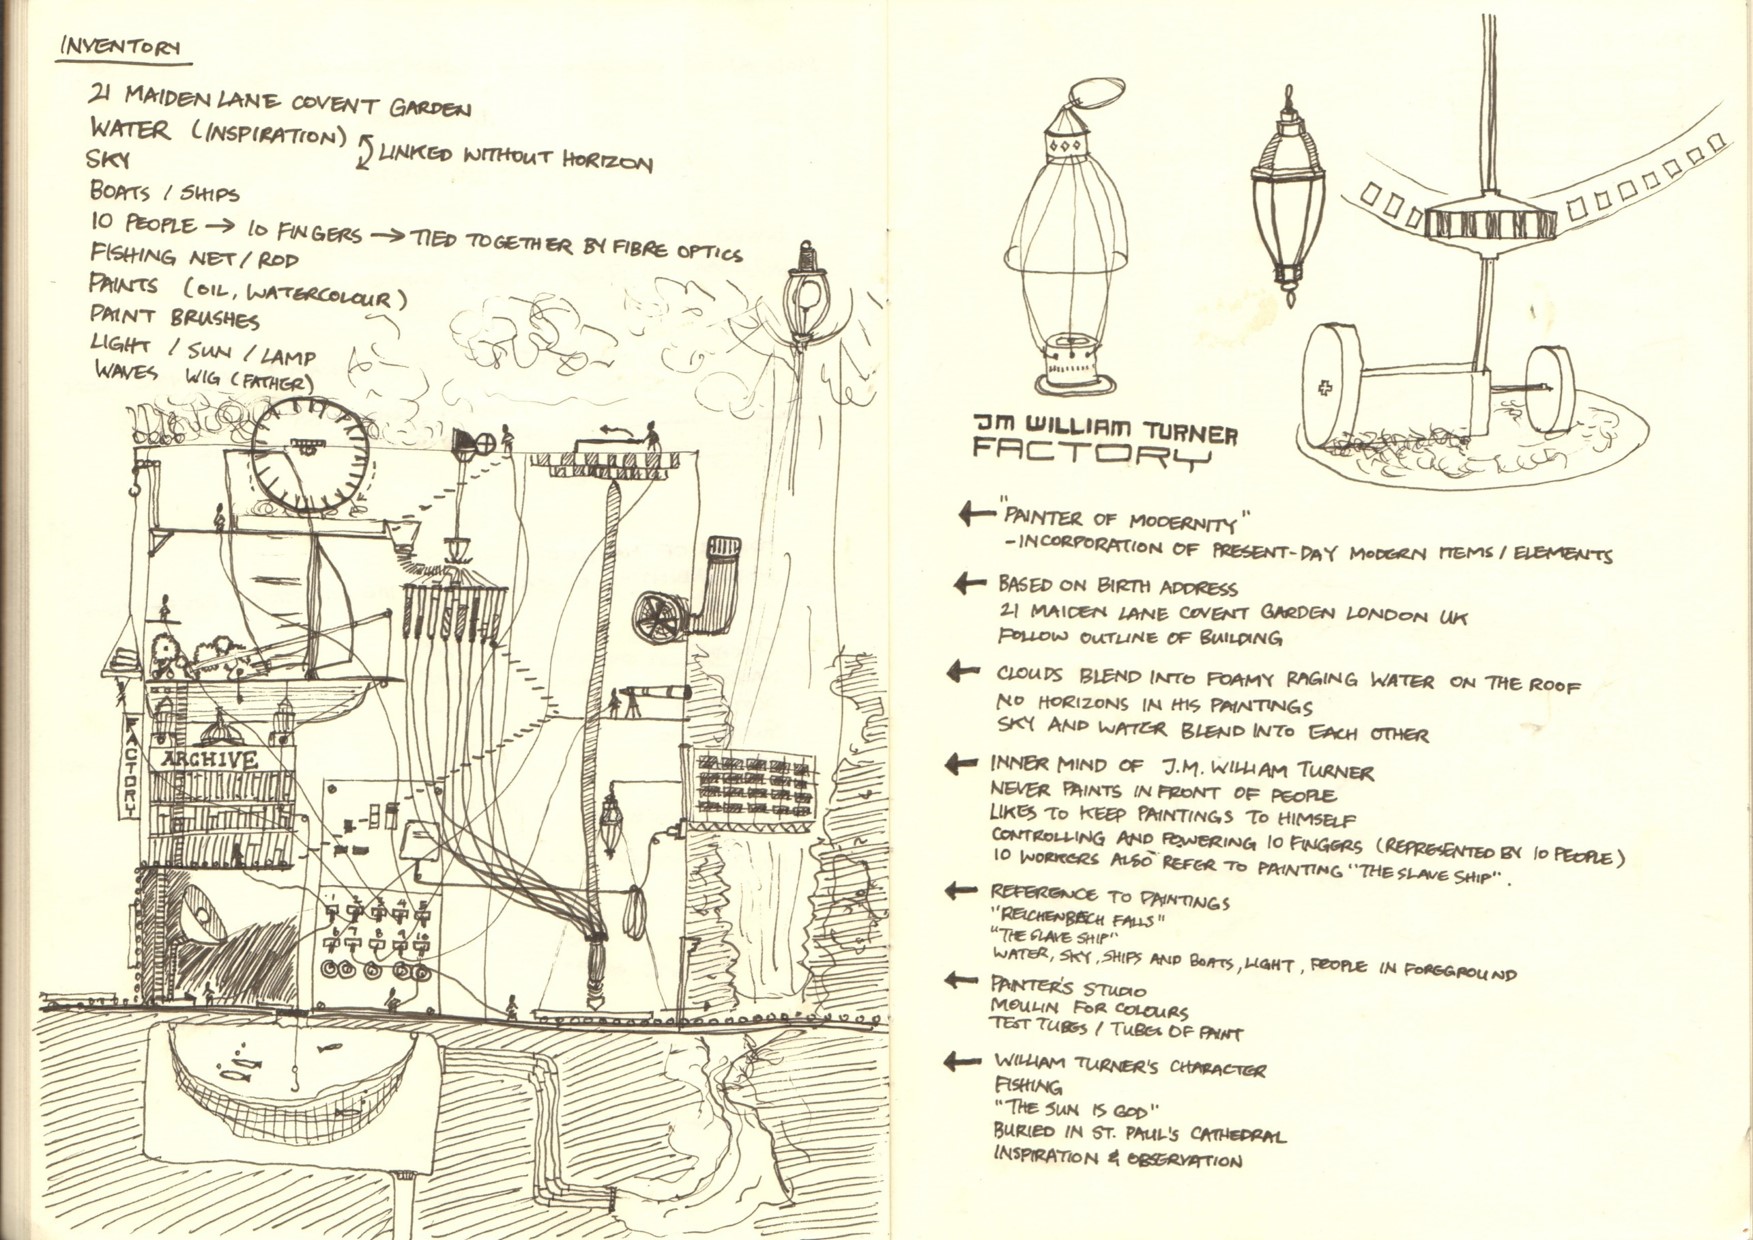 INVENTORY
21 MAIDEN LANE COVENT GARDEN
WATER (INSPIRATION)
LINKED WITHOUT HORIZON
SKY
BOATS / SHIPS
10 PEOPLE → 10 FINGERS → TIED TOGETHER BY FIBRE OPTICS
FISHING NET / ROD
PAINTS (OIL, WATERCOLOUR)
PAINT BRUSHES
LIGHT / SUN / LAMP
WAVES WIG (FATHER)
FACTORY
ARCHIVE
1 2 3 4 5
6 7 8 9 10
JM WILLIAM TURNER
FACTORY
← "PAINTER OF MODERNITY"
- INCORPORATION OF PRESENT-DAY MODERN ITEMS / ELEMENTS
← BASED ON BIRTH ADDRESS
21 MAIDEN LANE COVENT GARDEN LONDON UK
FOLLOW OUTLINE OF BUILDING
← CLOUDS BLEND INTO FOAMY RAGING WATER ON THE ROOF
NO HORIZONS IN HIS PAINTINGS
SKY AND WATER BLEND INTO EACH OTHER
← INNER MIND OF J.M. WILLIAM TURNER
NEVER PAINTS IN FRONT OF PEOPLE
LIKES TO KEEP PAINTINGS TO HIMSELF
CONTROLLING AND POWERING 10 FINGERS (REPRESENTED BY 10 PEOPLE)
10 WORKERS ALSO REFER TO PAINTING "THE SLAVE SHIP".
← REFERENCE TO PAINTINGS
"REICHENBACH FALLS"
"THE SLAVE SHIP"
WATER, SKY, SHIPS AND BOATS, LIGHT, PEOPLE IN FOREGROUND
← PAINTER'S STUDIO
MOULIN FOR COLOURS
TEST TUBES / TUBES OF PAINT
← WILLIAM TURNER'S CHARACTER
FISHING
"THE SUN IS GOD"
BURIED IN ST. PAUL'S CATHEDRAL
INSPIRATION & OBSERVATION